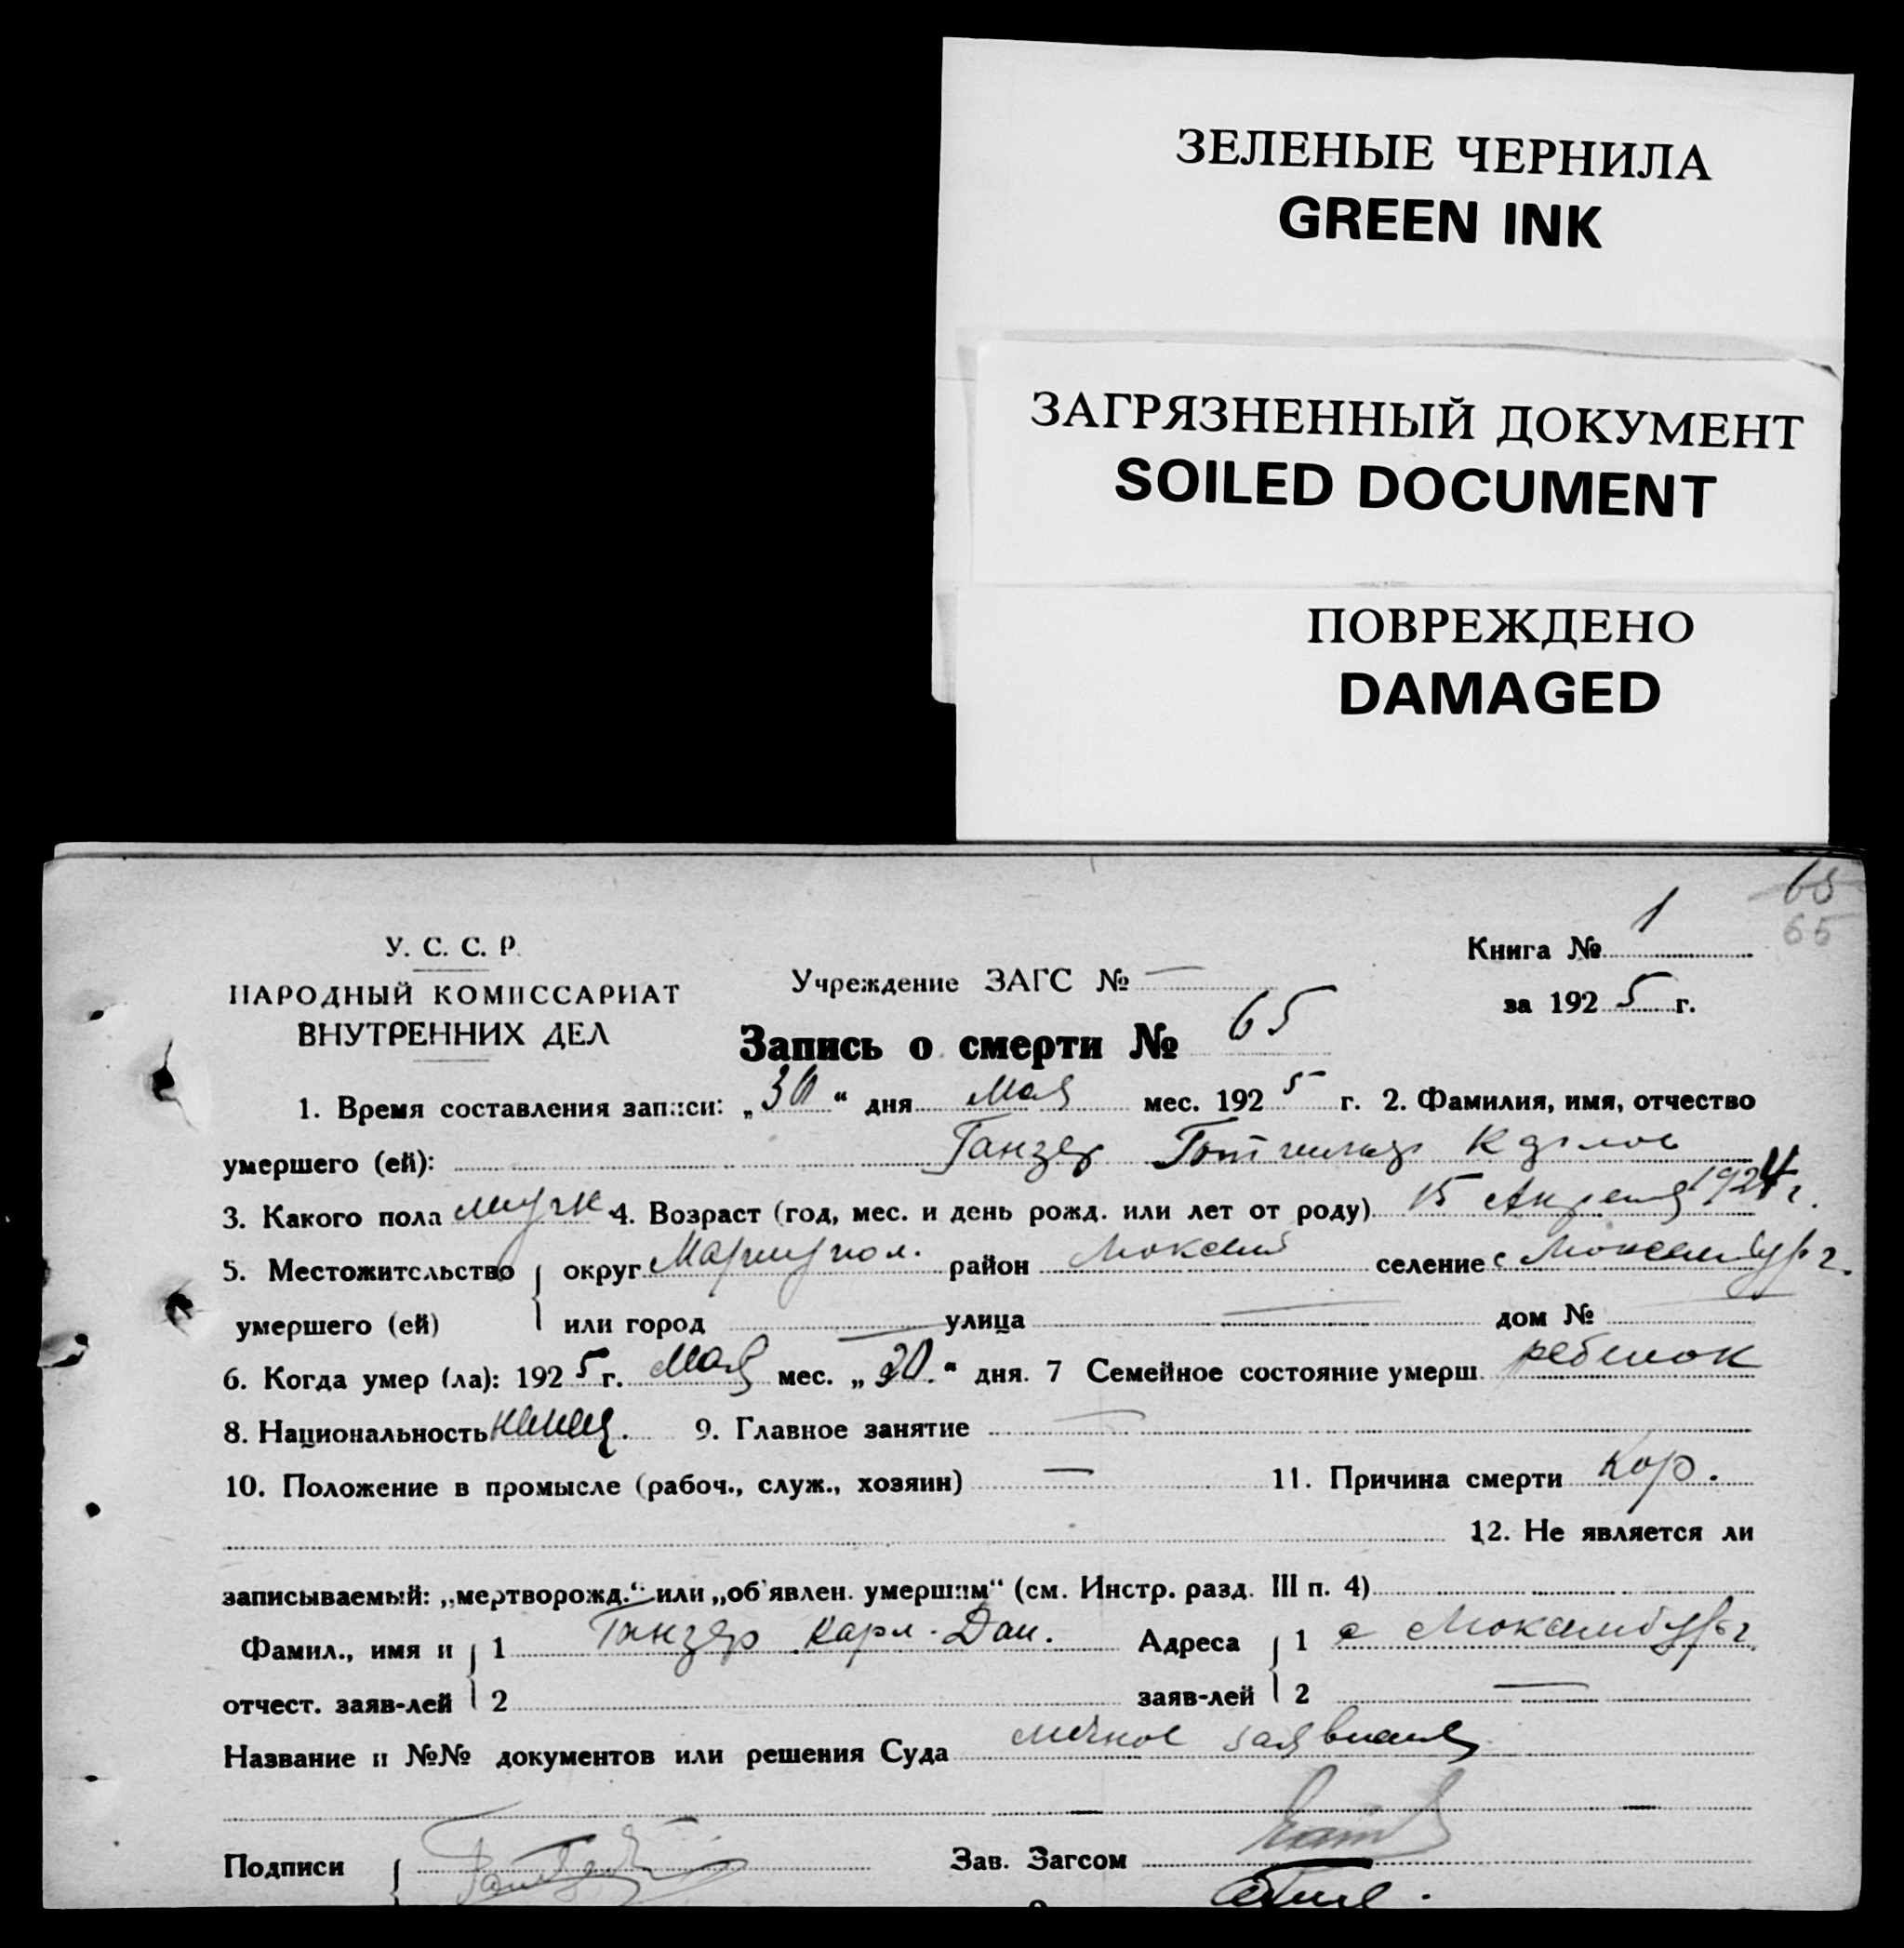 ЗЕЛЕНЫЕ ЧЕРНИЛА
GREEN INK
ЗАГРЯЗНЕННЫЙ ДОКУМЕНТ
SOILED DOCUMENT
ПОВРЕЖДЕНО
DAMAGED
65
65
У. С. С. Р.
НАРОДНЫЙ КОМИССАРИАТ
ВНУТРЕННИХ ДЕЛ
Учреждение ЗАГС № —
Книга № 1
за 1925 г.
Запись о смерти № 65
1. Время составления записи: „30“ дня Мая мес. 1925 г. 2. Фамилия, имя, отчество
умершего (ей): Ганзер
3. Какого пола мужск. 4. Возраст (год, мес. и день рожд. или лет от роду) 15 Апреля 1924 г.
5. Местожительство округ Мариупол. район селение с
умершего (ей) или город — улица — дом № —
6. Когда умер (ла): 1925 г. Мая мес. „20.“ дня. 7 Семейное состояние умерш. ребенок
8. Национальность немец. 9. Главное занятие —
10. Положение в промысле (рабоч., служ., хозяин) — 11. Причина смерти Кор.
12. Не является ли
записываемый: „мертворожд.“ или „об'явлен. умершим“ (см. Инстр. разд. III п. 4)
Фамил., имя и 1 Ганзер Карл Дан. Адреса 1 с
отчест. заяв-лей 2 заяв-лей 2 —
Название и №№ документов или решения Суда личное заявление
Подписи Зав. Загсом